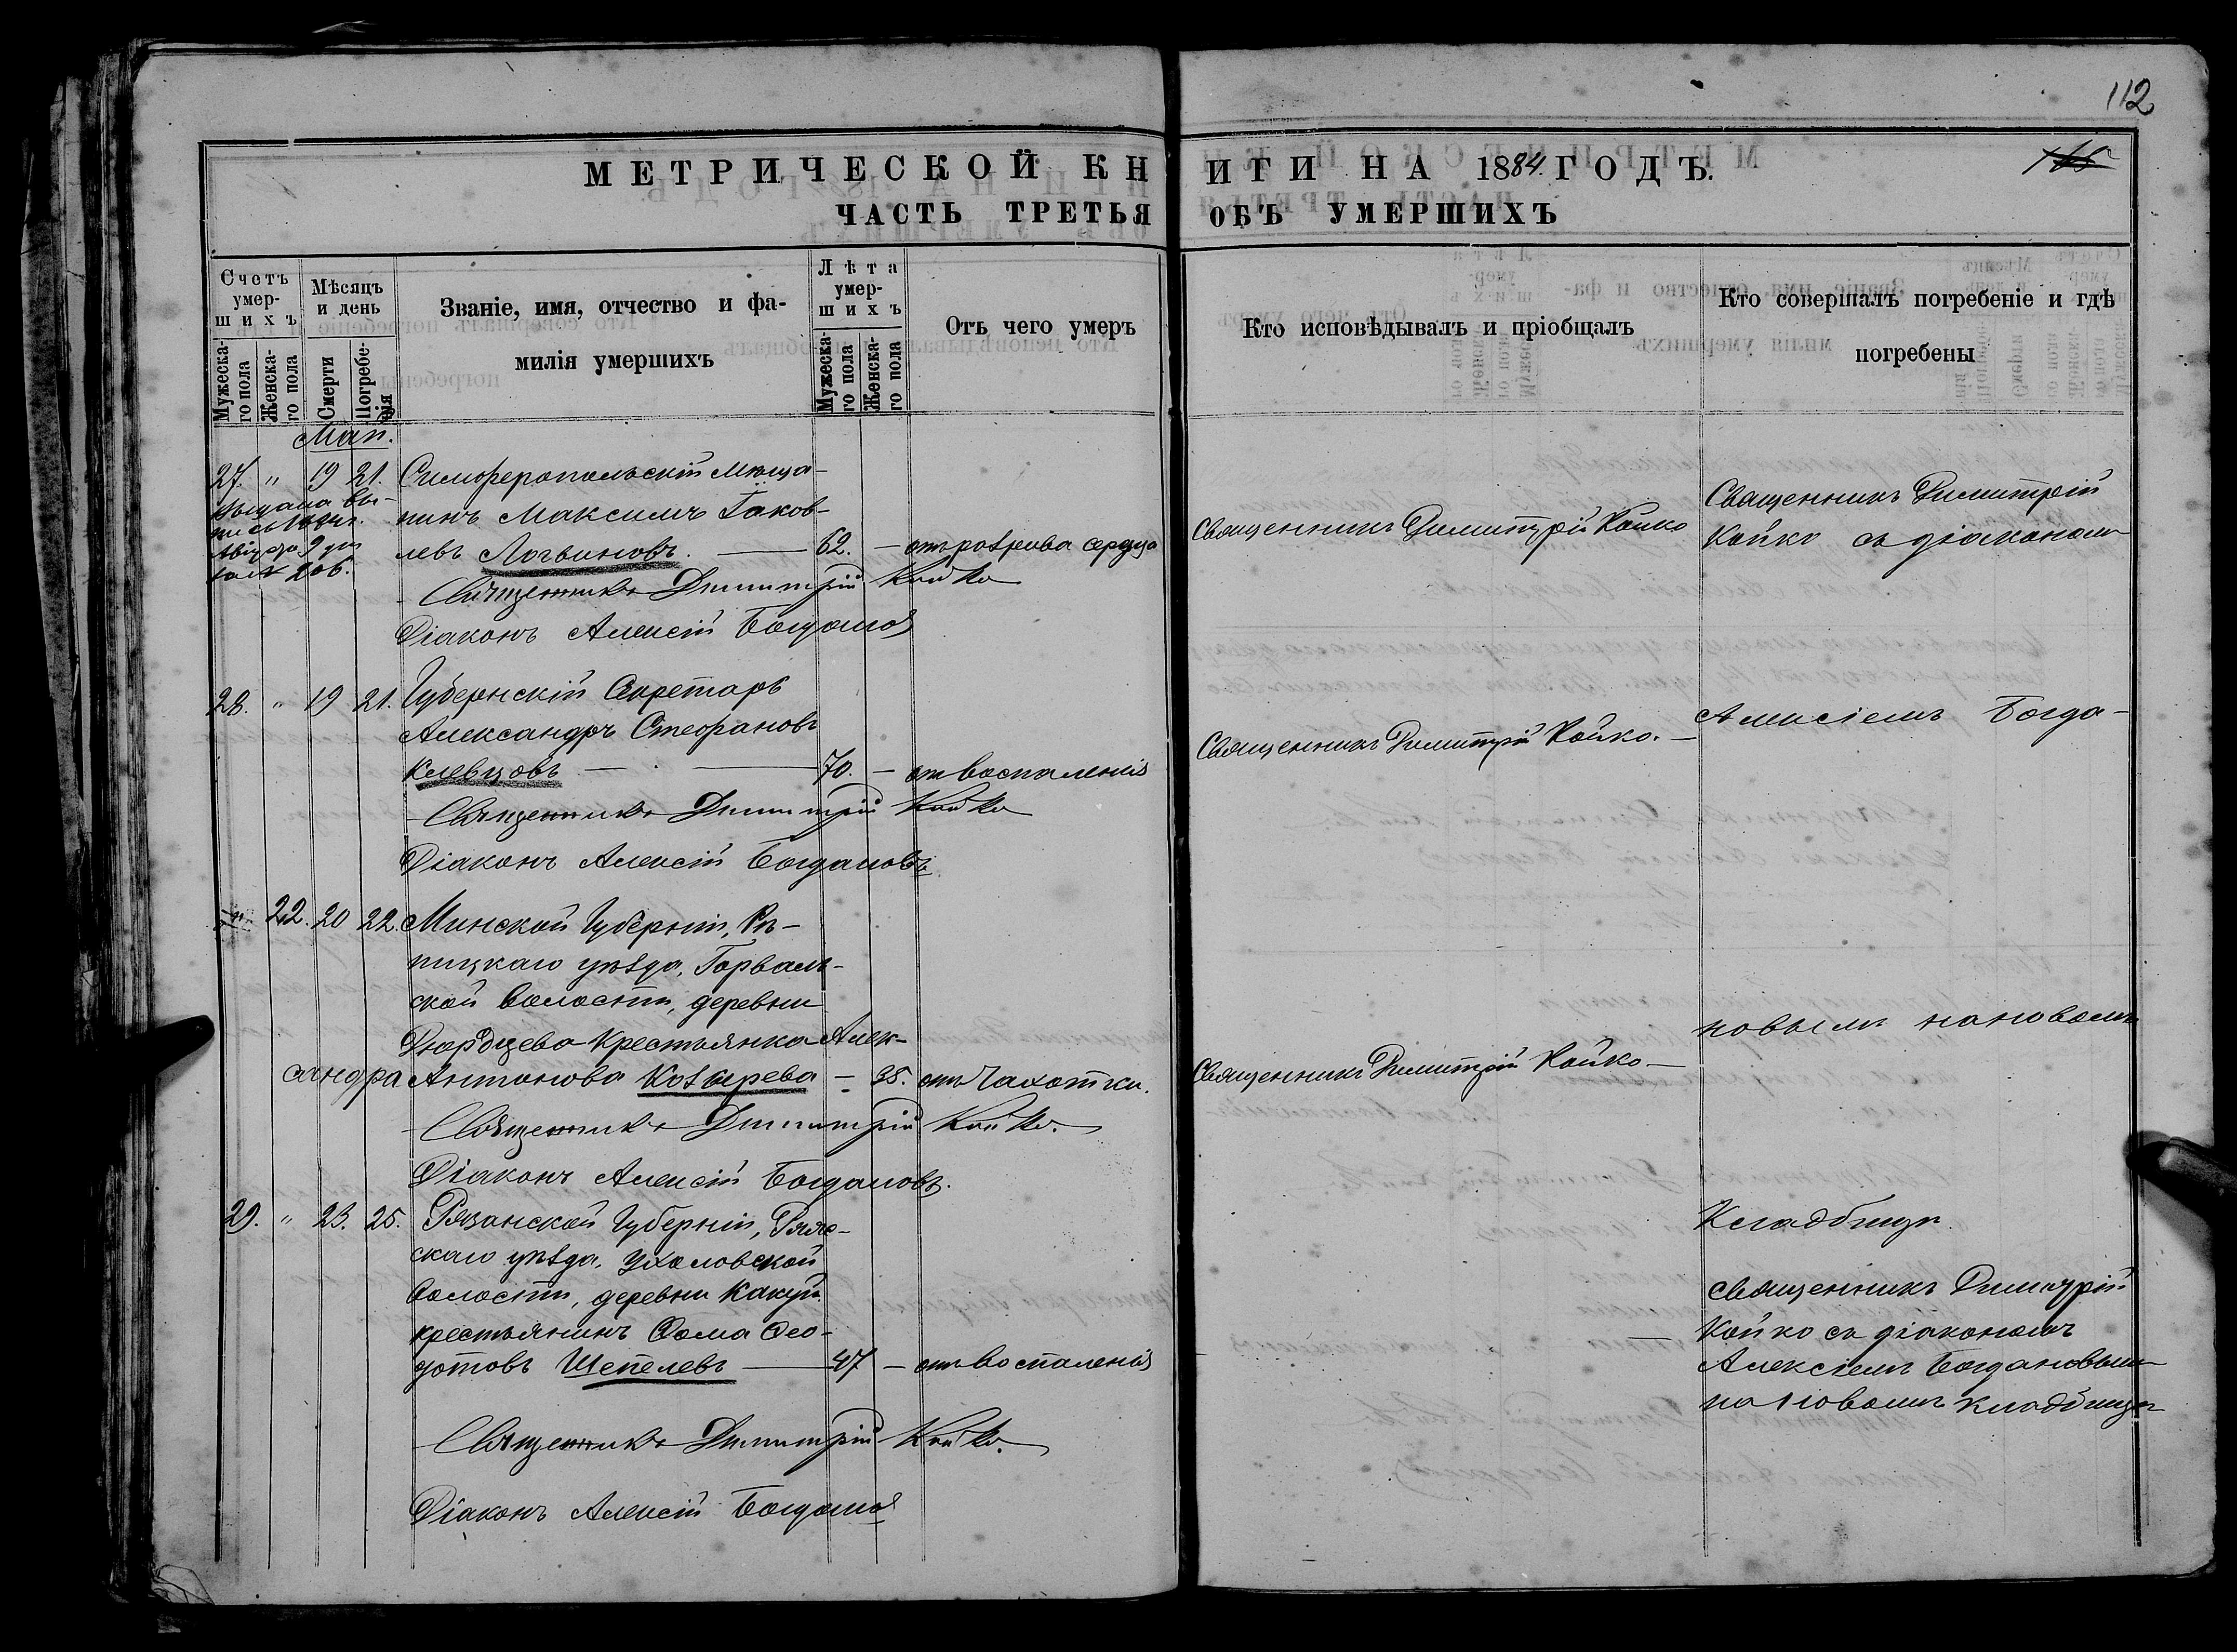 112
МЕТРИЧЕСКОЙ КНИГИ НА 1884. ГОДЪ.
ЧАСТЬ ТРЕТЬЯ ОБЪ УМЕРШИХЪ
Счетъ умерших ъ
Мужескаго пола
Женскаго пола
Мѣсяцъ и день
Смерти
Погребенія
Званіе, имя, отчество и фамилія умершихъ
Лѣта умерших ъ
Мужескаго пола
Женскаго пола
Отъ чего умеръ
Кто исповѣдывалъ и пріобщалъ
Кто совершалъ погребеніе и гдѣ погребены
Май.
27. " 19 21. Симферопольскій Мѣща-
нинъ Максимъ Іаков-
левъ Логвиновъ. — 62. — отъ разрыва сердца
Выдана вы-
пись
Августа 9 дня
за № 206.
Священникъ Димитрій Койко
Священникъ Димитрій Койко
Діаконъ Алексій Богданов
28. " 19 21. Губернскій Секретарь
Александръ Стефановъ
Клевцовъ — 70. — от воспаленія
Священникъ Димитрій Койко. —
Священникъ Димитрій Койко
Діаконъ Алексій Богдановъ
" 22. 20 22. Минской Губерніи, Рѣ-
пицкаго уѣзда, Горваль-
ской волости, деревни
крестьянка Алек-
сандра Антонова Козырева — 35. отъ Чахотки.
Священникъ Димитрій Койко —
Священникъ Димитрій Койко.
Діаконъ Алексій Богдановъ.
29. " 23. 25. Рязанской Губерніи, Ряж-
скаго уѣзда, Ухоловской
волости, деревни Какуй
крестьянинъ Ѳома Ѳео-
дотовъ Шепелевъ — 47 — отъ воспаленія
—
Священникъ Димитрій Койко.
Діаконъ Алексій Богданов
Священникъ Димитрій
Койко съ діакономъ
Алексіемъ Богда-
новымъ на новомъ
Кладбищѣ.
Священникъ Димитрій
Койко съ діакономъ
Алексіемъ Богдановымъ
на новомъ кладбищѣ